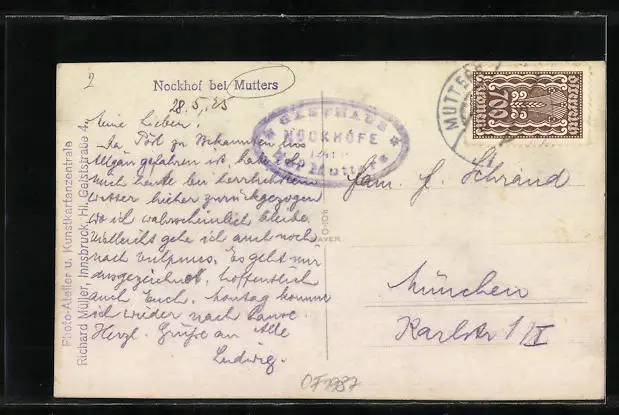 2
Nockhof bei Mutters
28.5.25
Meine Lieben,
Da Pöll zu Bekannten ins
Allgäu gefahren ist, habe ich
mich heute bei herrlichstem
Wetter hieher zurückgezogen
wo ich wahrscheinlich bleibe.
Vielleicht gehe ich auch noch
nach Vulpmes. Es geht mir
ausgezeichnet, hoffentlich
auch Euch. Montag komme
ich wieder nach
Herzl. Grüße an Alle
Ludwig.
Photo-Atelier u. Kunstkartenzentrale
Richard Müller, Innsbruck, Hl. Geiststraße 4.
GASTHAUS
NOCKHÖFE
bei Mutters
MUTTERS
700
Fam. J. Schrand
München
Karlstr 1/II
OF1987